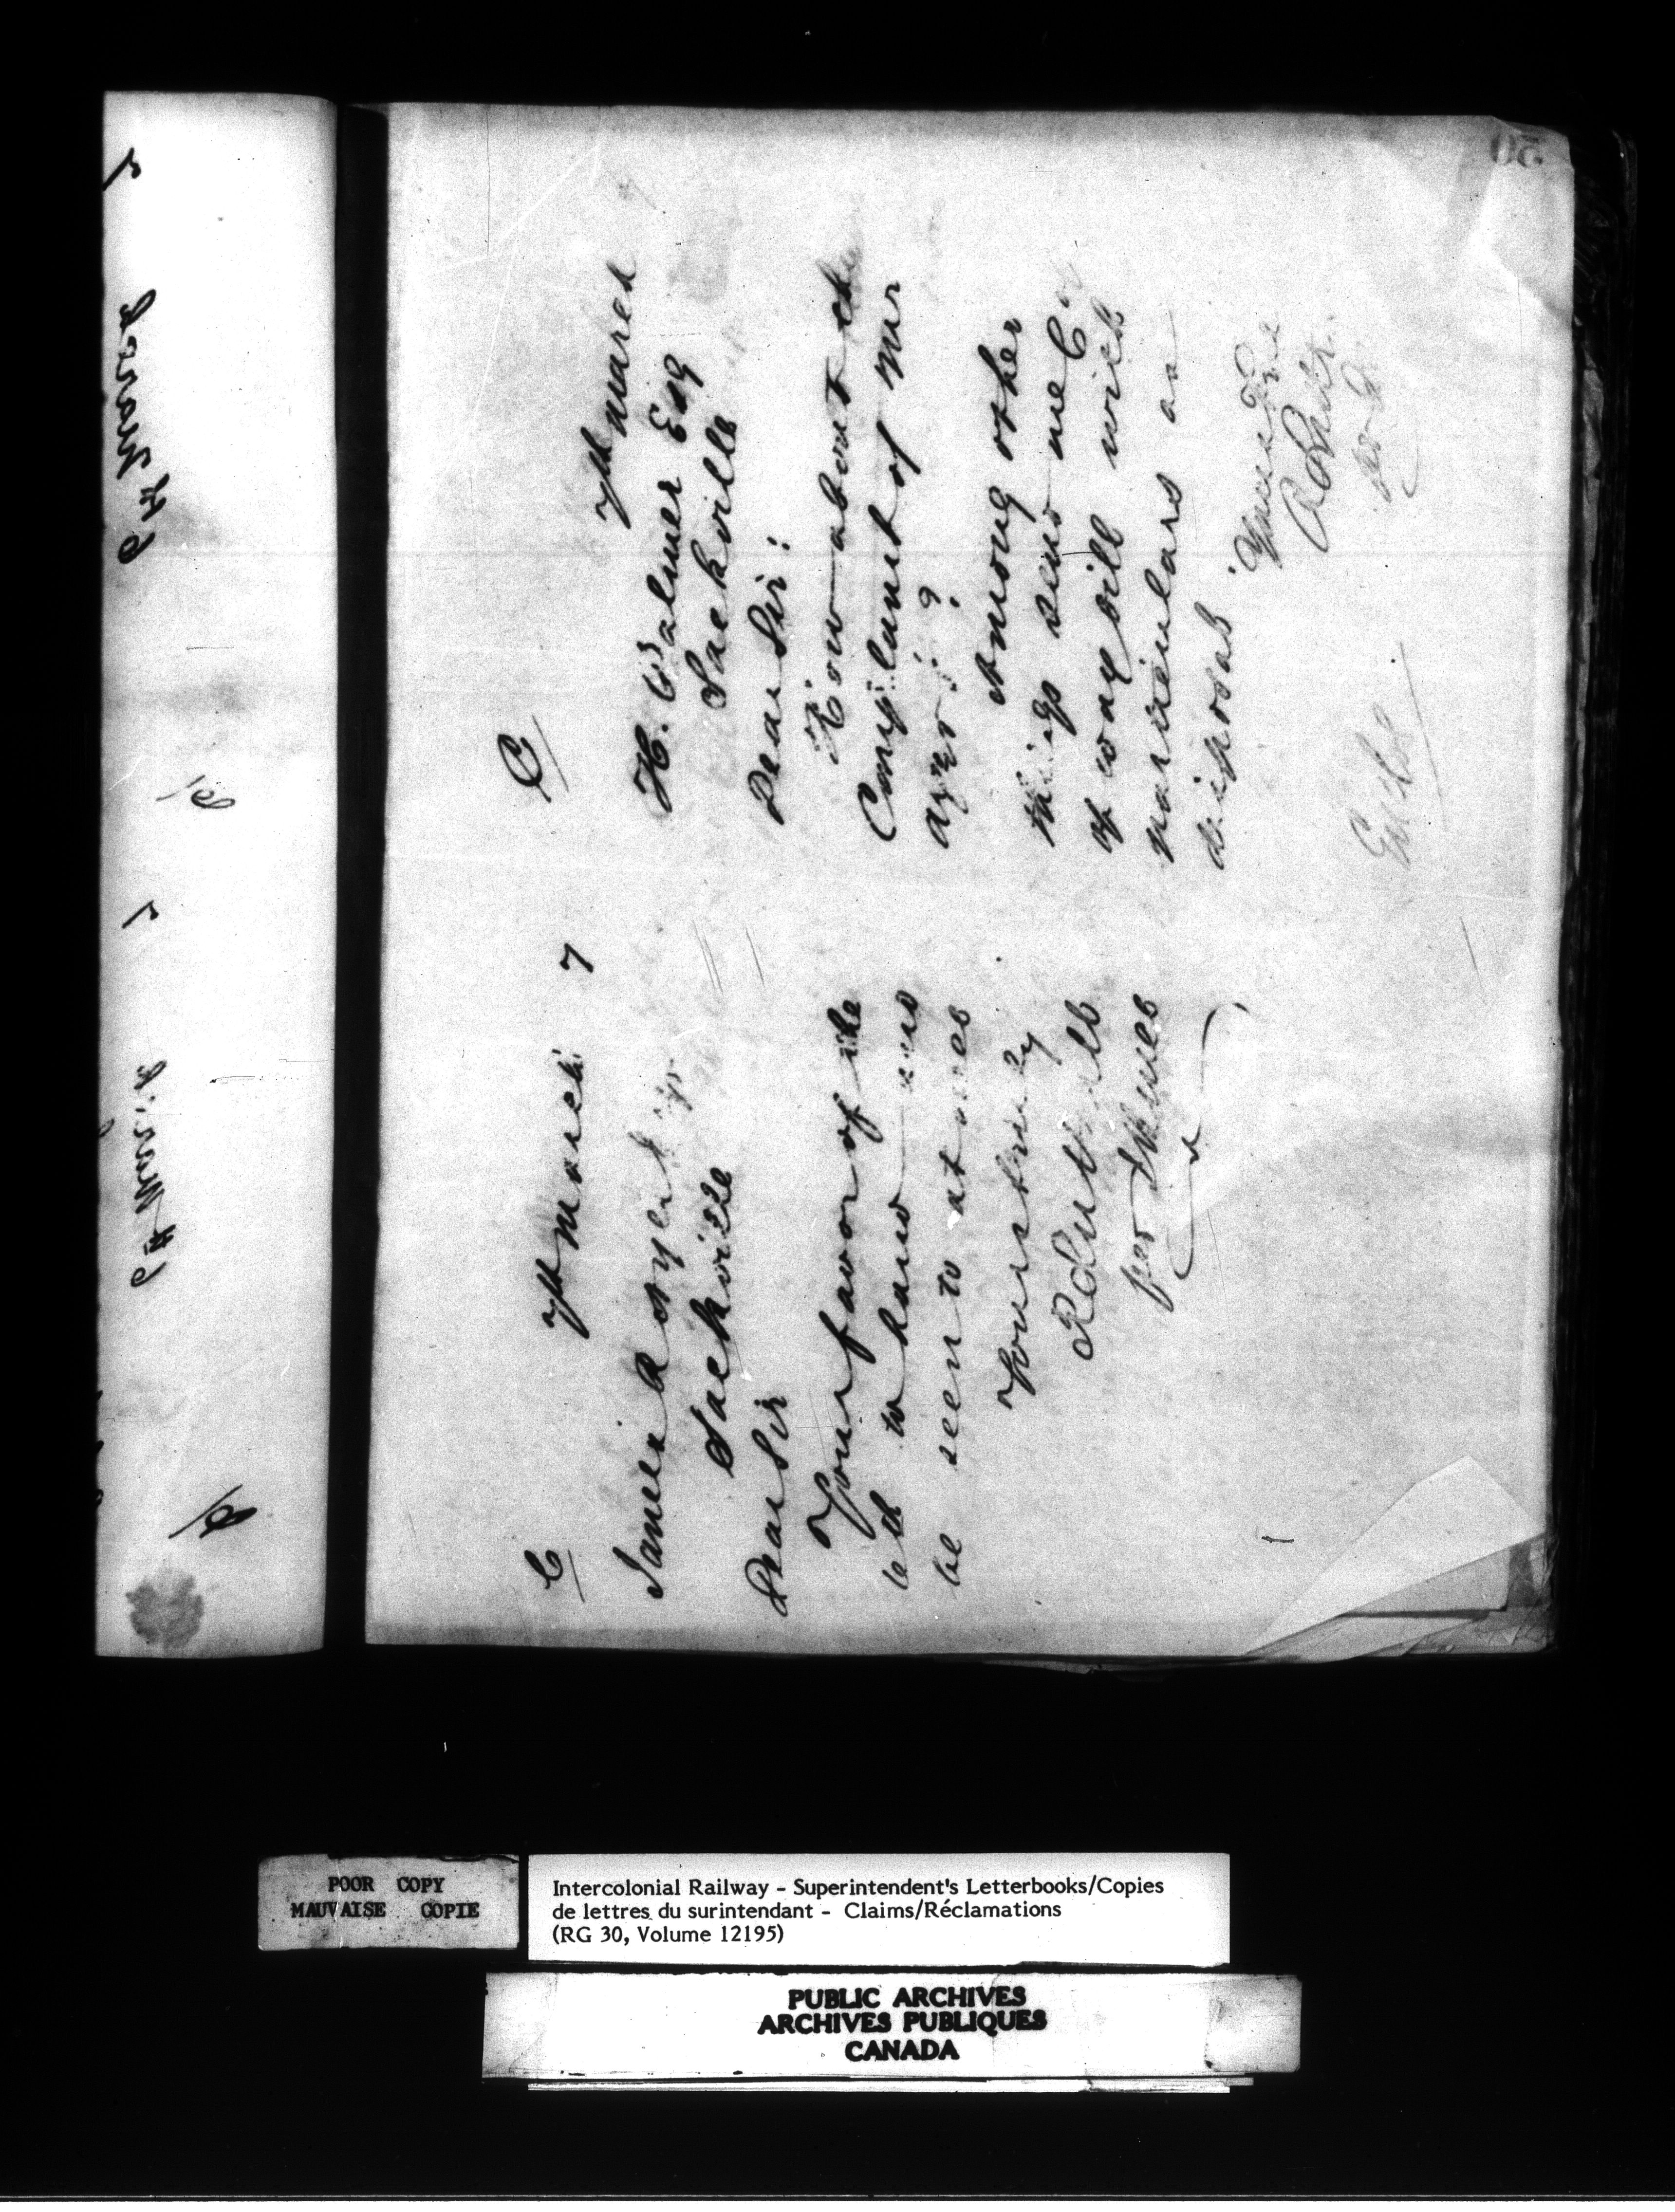 C
7th March 7
James R Ayer
Sackville
Dear Sir
Your favor of the
6th to hand
be seen to at once
Yours truly
per
C
7th March
H. Palmer Esq
Sackville
Dear Sir:
How about the
Complaint of Mr
Ayer?
Among other
things send me C
of way bill with
particulars
disposal
Yours
per
6th March
7
6th March
7
50
POOR COPY
MAUVAISE COPIE
Intercolonial Railway - Superintendent's Letterbooks/Copies
de lettres du surintendant - Claims/Réclamations
(RG 30, Volume 12195)
PUBLIC ARCHIVES
ARCHIVES PUBLIQUES
CANADA